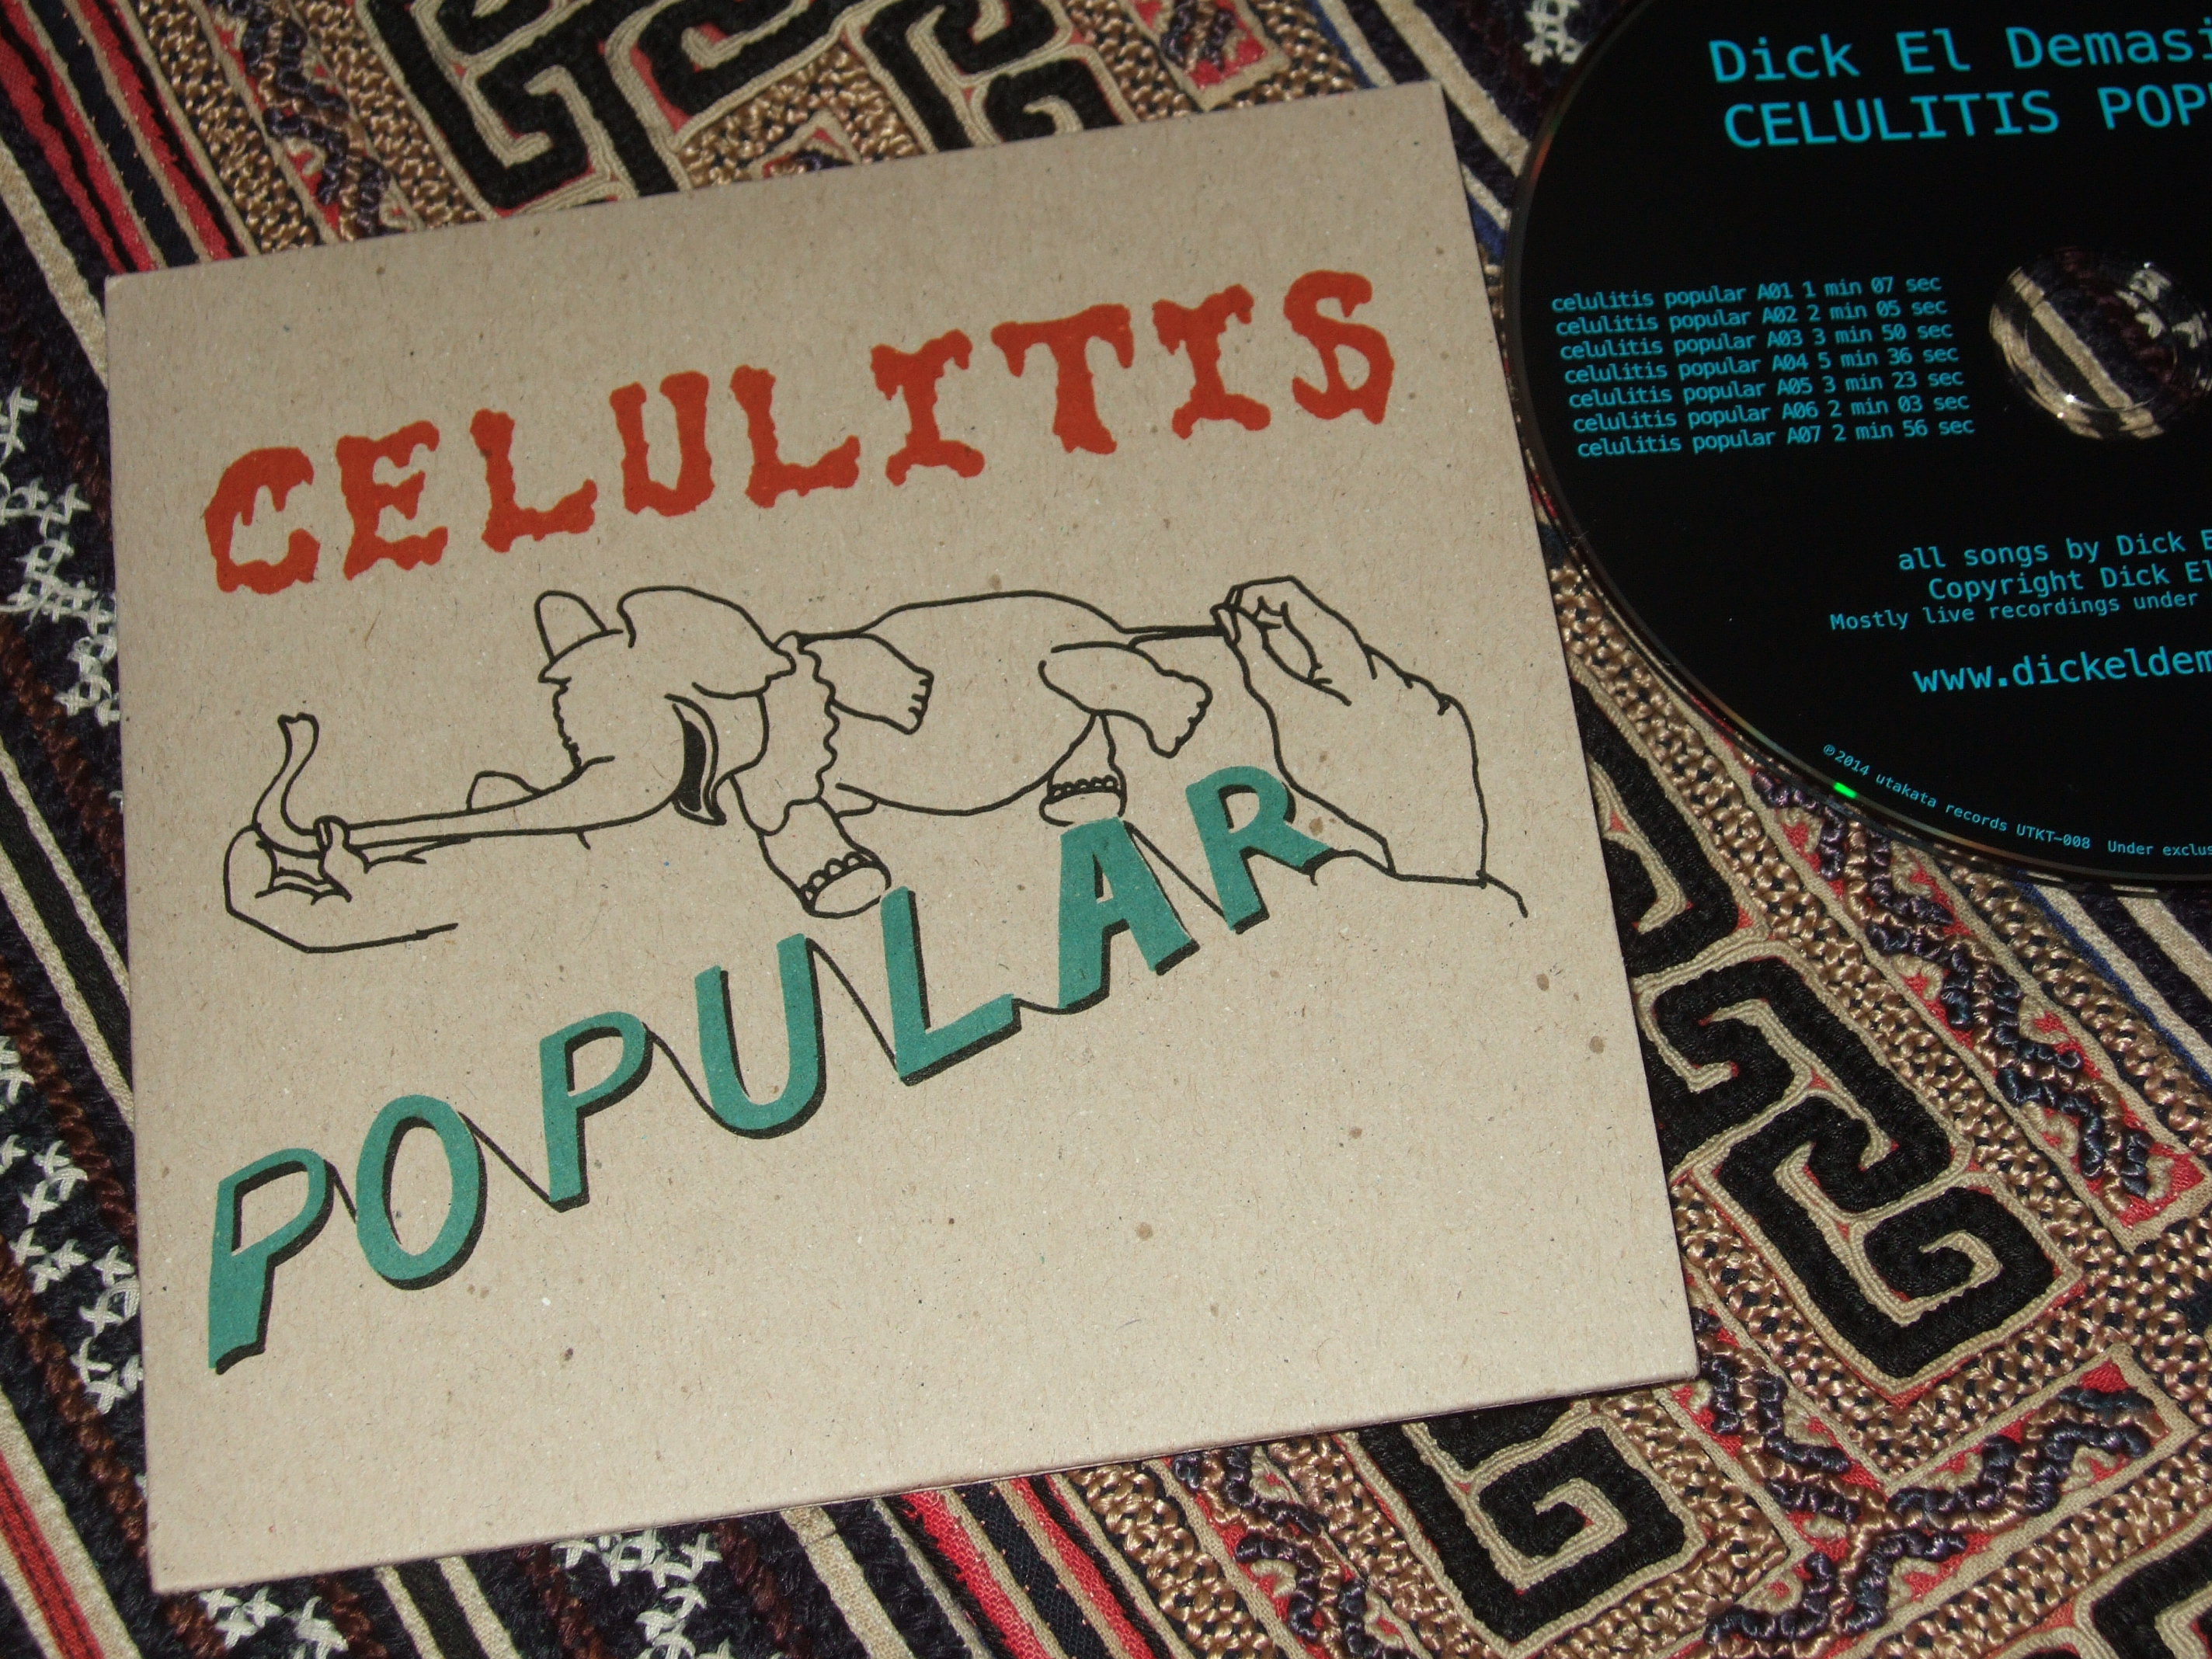 CELULITIS
POPULAR
Dick El
CELULITIS
celulitis popular A01 1 min 07 sec
celulitis popular A02 2 min 05 sec
celulitis popular A03 3 min 50 sec
celulitis popular A04 5 min 36 sec
celulitis popular A05 3 min 23 sec
celulitis popular A06 2 min 03 sec
celulitis popular A07 2 min 56 sec
all songs by Dick
Copyright Dick El
Mostly live recordings under
www.dickeldem
℗2014 utakata records UTKT-008 Under